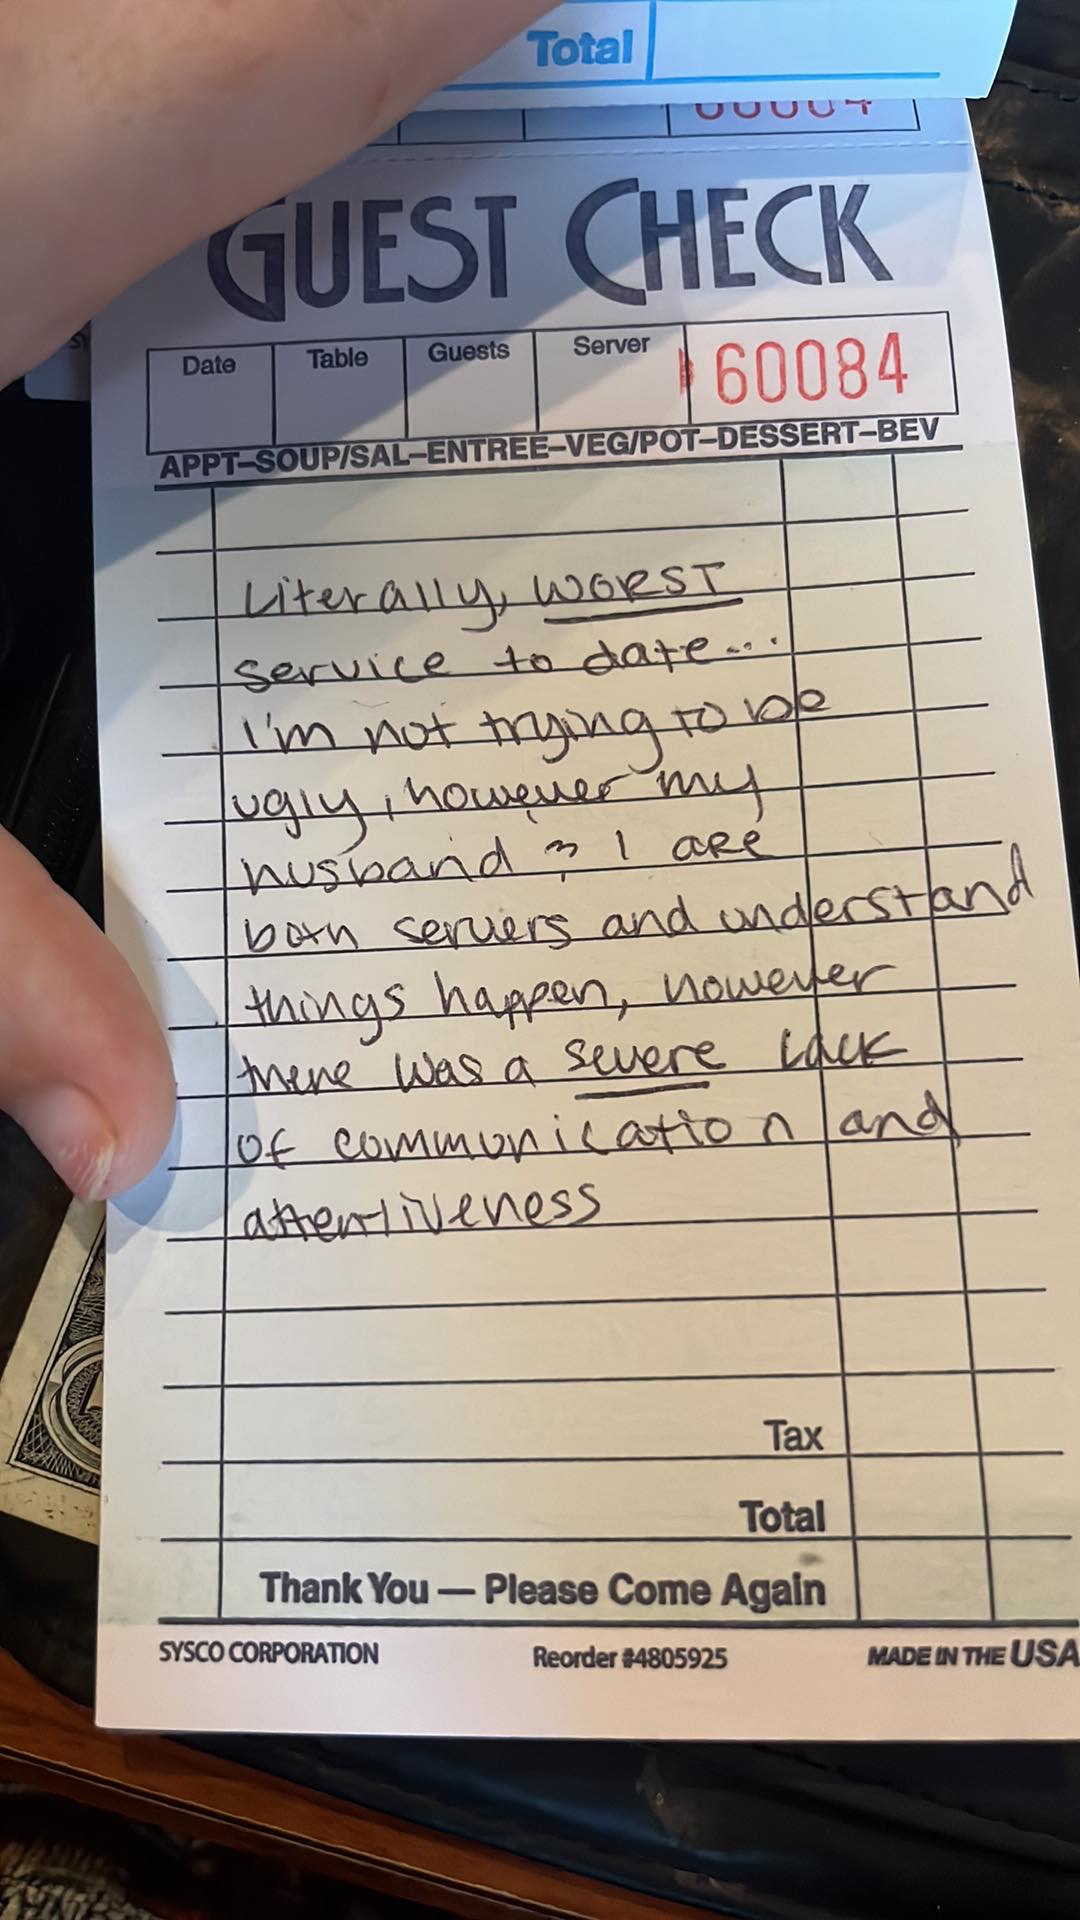 Total
GUEST CHECK
Date Table Guests Server 60084
APPT–SOUP/SAL–ENTREE–VEG/POT–DESSERT–BEV
Literally, WORST
service to date...
I'm not trying to be
ugly, however my
husband & I are
both servers and understand
things happen, however
there was a severe Lack
of communication and
attentiveness
Tax
Total
Thank You — Please Come Again
SYSCO CORPORATION Reorder #4805925 MADE IN THE USA